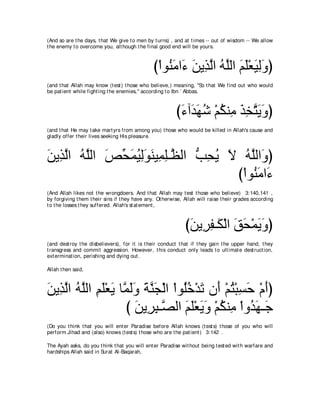 (And so are the days, that We give to men by turns) , and at times -- out of wisdom -- We allow
the enemy to overcome you, although the final good end will be yours.
(وَلِيَعْلَمَ اللَّهُ الَّذِينَ ءَامَنُواْ)
(and that Allah may know (test) those who believe,) meaning, "So that We find out who would
be patient while fighting the enemies,'' according to Ibn `Abbas.
(وَيَتَّخِذَ مِنكُمْ شُهَدَآءَ)
(and that He may take martyrs from among you) those who would be killed in Allah's cause and
gladly offer their lives seeking His pleasure.
(وَاللَّهُ لاَ يُحِبُّ الظَّـلِمِينَوَلِيُمَحِّصَ اللَّهُ الَّذِينَ
ءَامَنُواْ)
(And Allah likes not the wrongdoers. And that Allah may test those who believe) 3:140,141 ,
by forgiving them their sins if they have any. Otherwise, Allah will raise their grades according
to the losses they suffered. Allah's statement,
(وَيَمْحَقَ الْكَـفِرِينَ)
(and destroy the disbelievers), for it is their conduct that if they gain the upper hand, they
transgress and commit aggression. However, this conduct only leads to ultimate destruction,
extermination, perishing and dying out.
Allah then said,
(أَمْ حَسِبْتُمْ أَن تَدْخُلُواْ الْجَنَّةَ وَلَمَّا يَعْلَمِ اللَّهُ الَّذِينَ
جَـهَدُواْ مِنكُمْ وَيَعْلَمَ الصَّـبِرِينَ )
(Do you think that you will enter Paradise before Allah knows (tests) those of you who will
perform Jihad and (also) knows (tests) those who are the patient) 3:142 .
The Ayah asks, do you think that you will enter Paradise without being tested with warfare and
hardships Allah said in Surat Al-Baqarah,